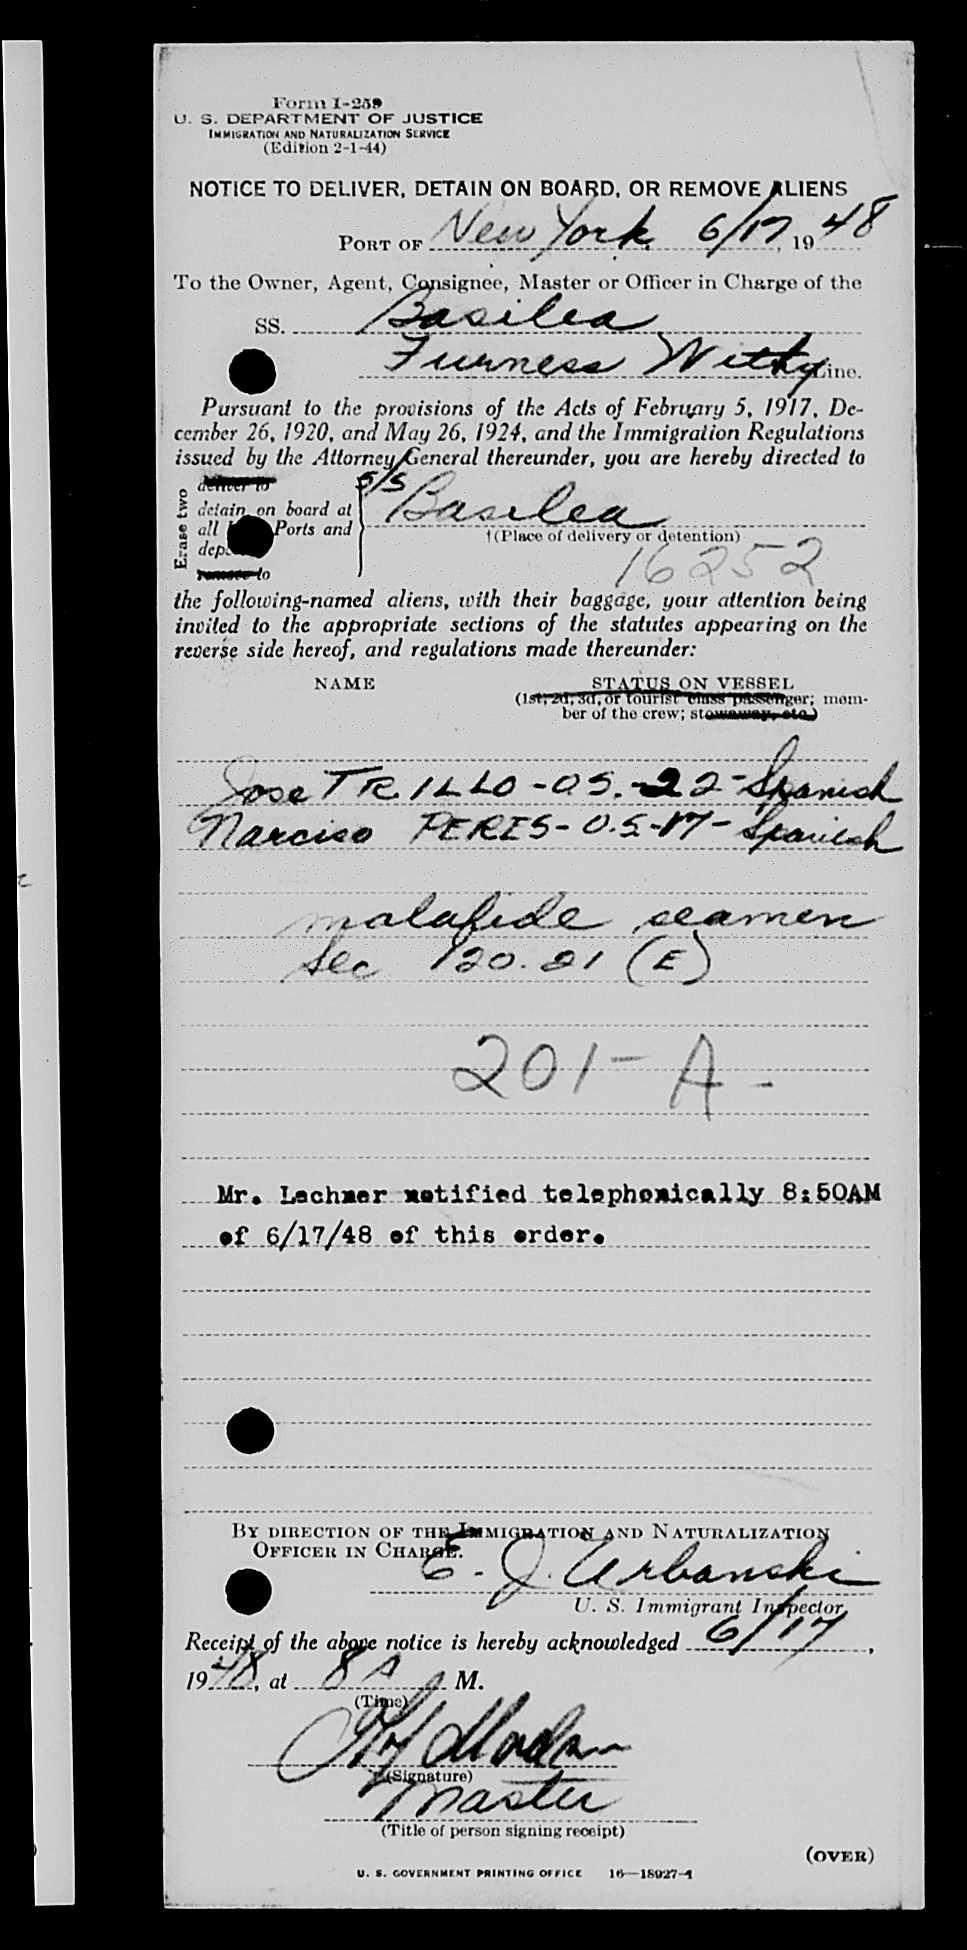 Form I-259
U. S. DEPARTMENT OF JUSTICE
IMMIGRATION AND NATURALIZATION SERVICE
(Edition 2-1-44)
NOTICE TO DELIVER, DETAIN ON BOARD, OR REMOVE ALIENS
PORT OF New York 6/17, 1948
To the Owner, Agent, Consignee, Master or Officer in Charge of the
SS. Basilea
Furness Withy Line.
Pursuant to the provisions of the Acts of February 5, 1917, De-
cember 26, 1920, and May 26, 1924, and the Immigration Regulations
issued by the Attorney General thereunder, you are hereby directed to
Erase two
deliver to
detain on board at
all Ports and
remove to
S/S Basilea
†(Place of delivery or detention)
16252
the following-named aliens, with their baggage, your attention being
invited to the appropriate sections of the statutes appearing on the
reverse side hereof, and regulations made thereunder:
NAME STATUS ON VESSEL
(1st, 2d, 3d, or tourist class passenger; mem-
ber of the crew; stowaway, etc.)
Jose TRILLO - O.S. - 22 - Spanish
Narciso PERES - O.S - 17 - Spanish
malafide seamen
Sec 120.21 (E)
201-A-
Mr. Lechner notified telephonically 8:50AM
of 6/17/48 of this order.
BY DIRECTION OF THE IMMIGRATION AND NATURALIZATION
OFFICER IN CHARGE.
E. J. Urbanski
U. S. Immigrant Inspector
Receipt of the above notice is hereby acknowledged 6/17,
1948, at 8 A M.
(Time)
(Signature)
Master
(Title of person signing receipt)
(OVER)
U. S. GOVERNMENT PRINTING OFFICE 16—18927-1